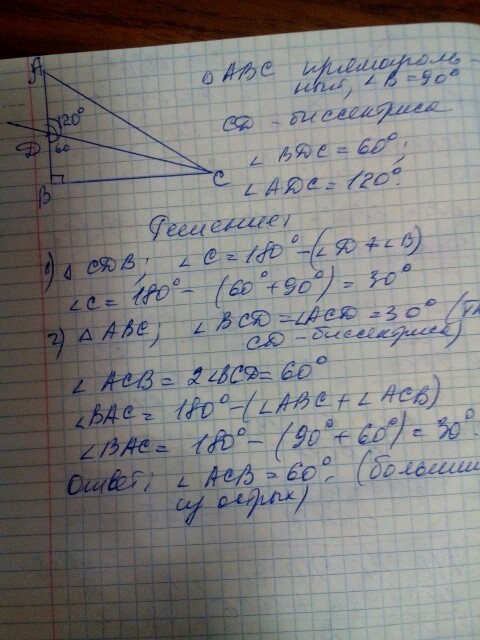 A
120°
D
60
B
C
△ ABC прямоуголь-
ный, ∠ B = 90°
CD - биссектриса
∠ BDC = 60°;
∠ ADC = 120°.
Решение;
1) △ CDB; ∠ C = 180° - (∠ D + ∠ B)
∠ C = 180° - (60° + 90°) = 30°
2) △ ABC; ∠ BCD = ∠ ACD = 30°
CD - биссектриса)
∠ ACB = 2∠BCD = 60°
∠BAC = 180° - (∠ ABC + ∠ ACB)
∠ BAC = 180° - (90° + 60°) = 30°.
Ответ; ∠ ACB = 60°. (больший
из острых)